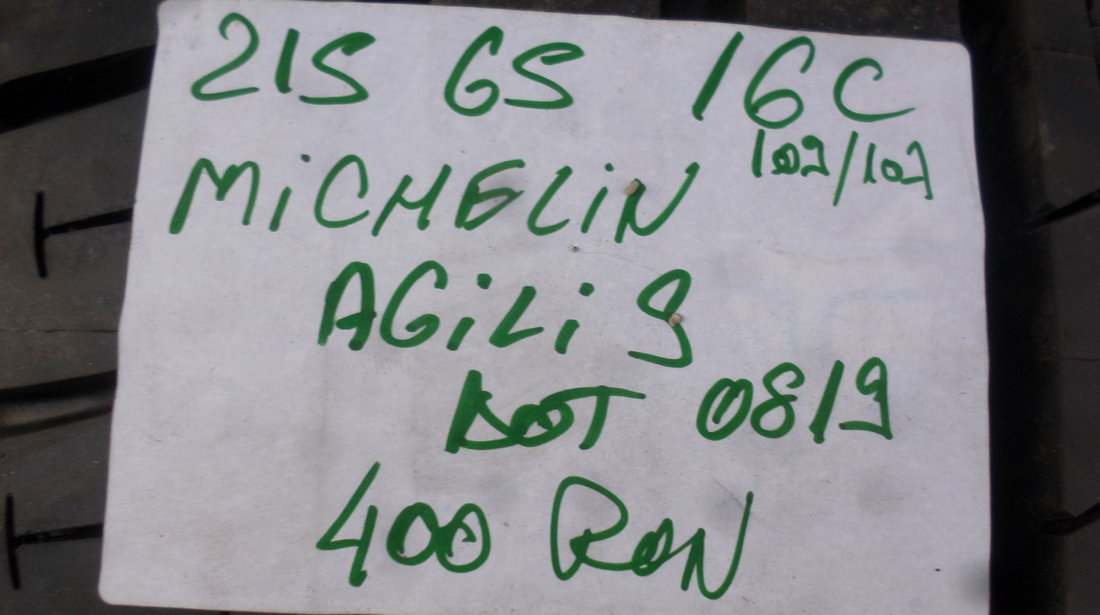 215 65 16C
109/107
MiCHELiN
AGiLiS
DOT 0819
400 RON